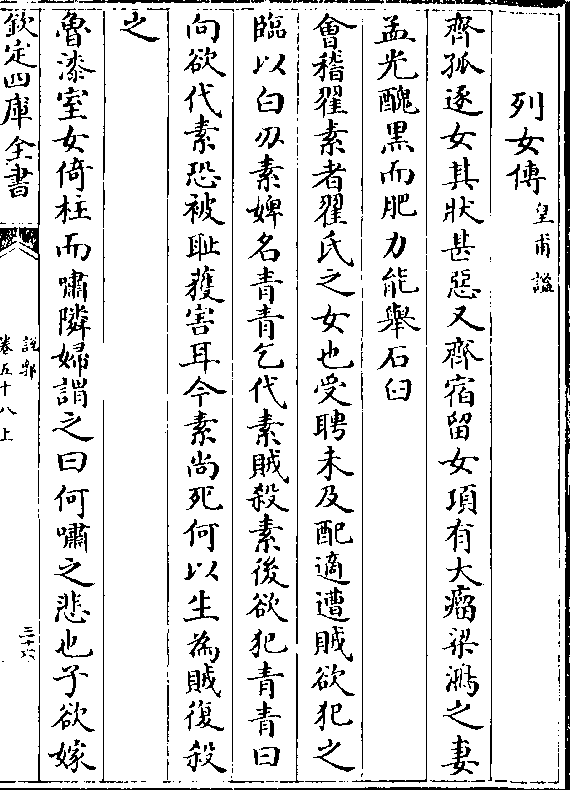 列女傳皇甫謐
齊孤逐女其狀甚惡又齊宿留女項有大瘤梁鴻之妻
孟光醜黒而肥力能舉石臼
會稽翟素者翟氏之女也受聘未及配適遭賊欲犯之
臨以白刃素婢名青青乞代素賊殺素後欲犯青青曰
向欲代素恐被耻獲害耳今素尚死何以生為賊復殺
之
魯漆室女倚柱而嘯隣婦謂之曰何嘯之悲也子欲嫁
欽定四庫全書
說郛
卷五十八上
三十六